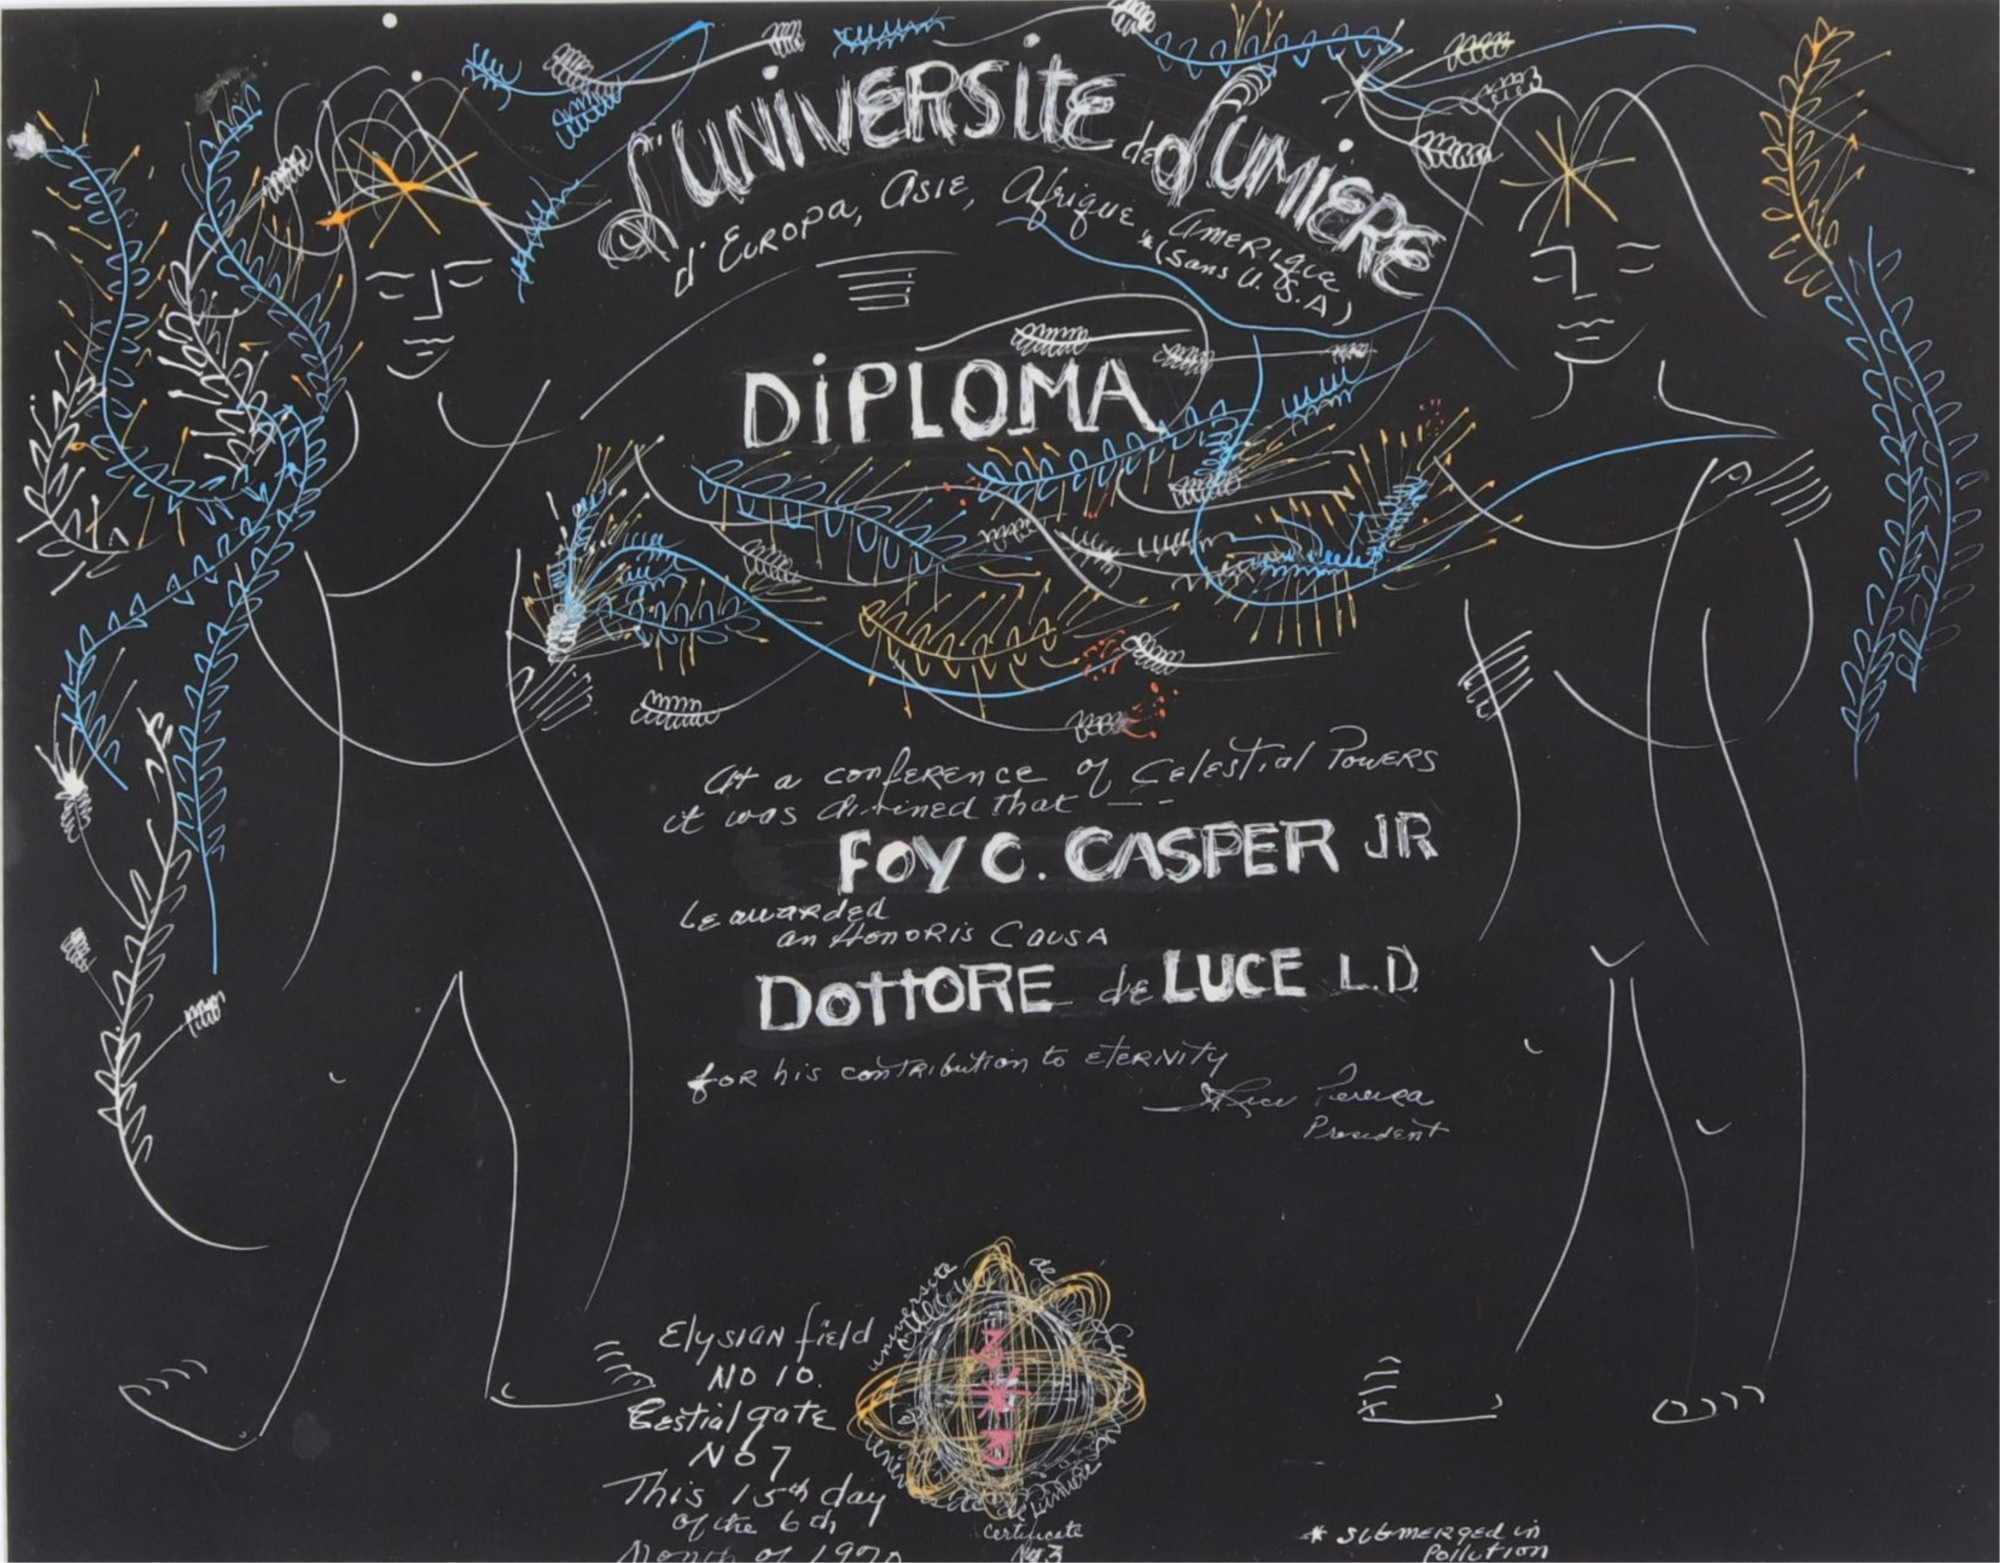 L'UNIVERSITE de LUMIERE
d'EUROPA, ASIE, Afrique, AMERIQUE
*(sans U.S.A)
DIPLOMA
At a confERENce of CElestial POWERS
it was divined that --
FOY C. CASPER JR
be awarded
an HONORIS CAUSA
DOttORE de LUCE L.D
FOR his contribution to ETERNITY
I Rice Pereira
President
Elysian field
NO 10.
Cestial gate
NO 7
This 15th day
of the 6th
Month of 1970
universite de
de Lumière
Certificate
No 3
* SUBMERGED in
Pollution